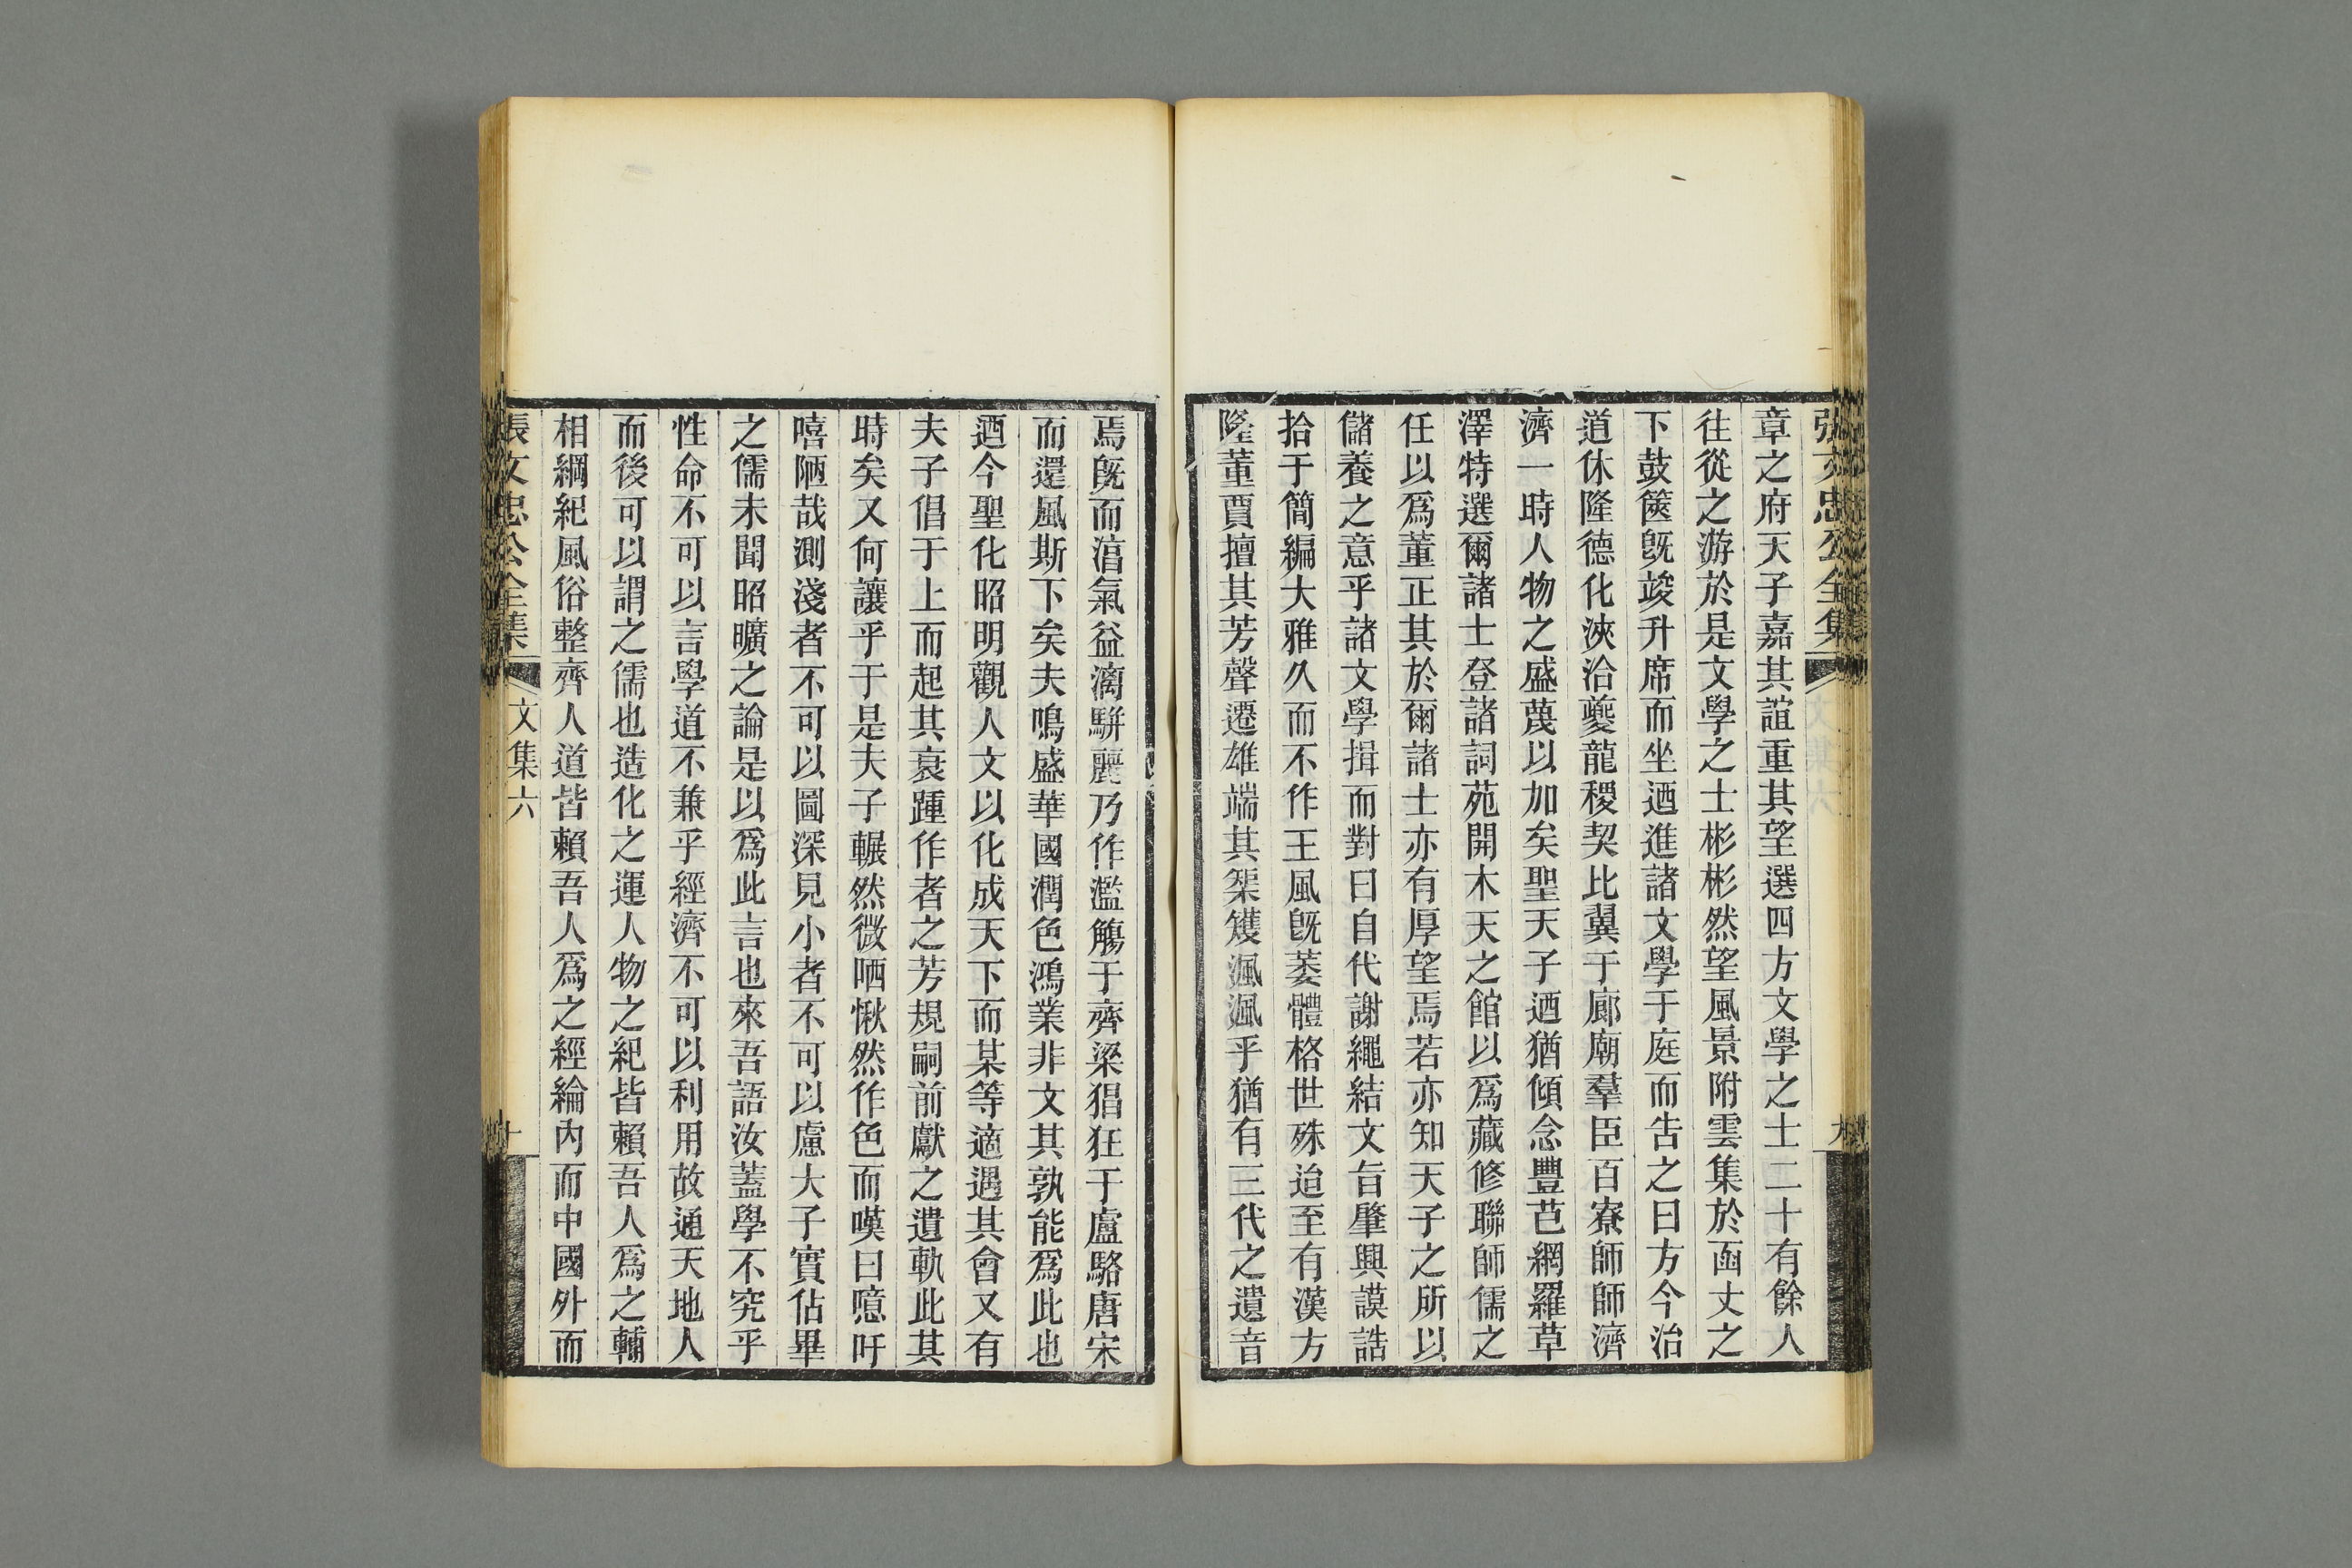 張文忠公全集
章之府天子嘉其誼重其望選四方文學之士二十有餘人
往從之游於是文學之士彬彬然望風景附雲集於函丈之
下鼓篋旣竣升席而坐迺進諸文學于庭而告之曰方今治
道休隆德化浹洽夔龍稷契比翼于廊廟羣臣百寮師師濟
濟一時人物之盛蔑以加矣聖天子迺猶傾念豐芑網羅草
澤特選爾諸士登諸詞苑開木天之館以爲藏修聯師儒之
任以爲董正其於爾諸士亦有厚望焉若亦知天子之所以
儲養之意乎諸文學揖而對曰自代謝繩結文旨肇興謨誥
拾于簡編大雅久而不作王風旣萎體格世殊迨至有漢方
隆董賈擅其芳聲遷雄端其榘矱渢渢乎猶有三代之遺音
焉旣而淯氣益漓駢麗乃作濫觴于齊梁猖狂于盧駱唐宋
而還風斯下矣夫鳴盛華國潤色鴻業非文其孰能爲此也
迺今聖化昭明觀人文以化成天下而某等適遇其會又有
夫子倡于上而起其衰踵作者之芳規嗣前獻之遺軌此其
時矣又何讓乎于是夫子囅然微哂愀然作色而嘆曰噫吁
嘻陋哉測淺者不可以圖深見小者不可以慮大子實佔畢
之儒未聞昭曠之論是以爲此言也來吾語汝蓋學不究乎
性命不可以言學道不兼乎經濟不可以利用故通天地人
而後可以謂之儒也造化之運人物之紀皆賴吾人爲之輔
相綱紀風俗整齊人道皆賴吾人爲之經綸內而中國外而
張文忠公全集 文集六 十